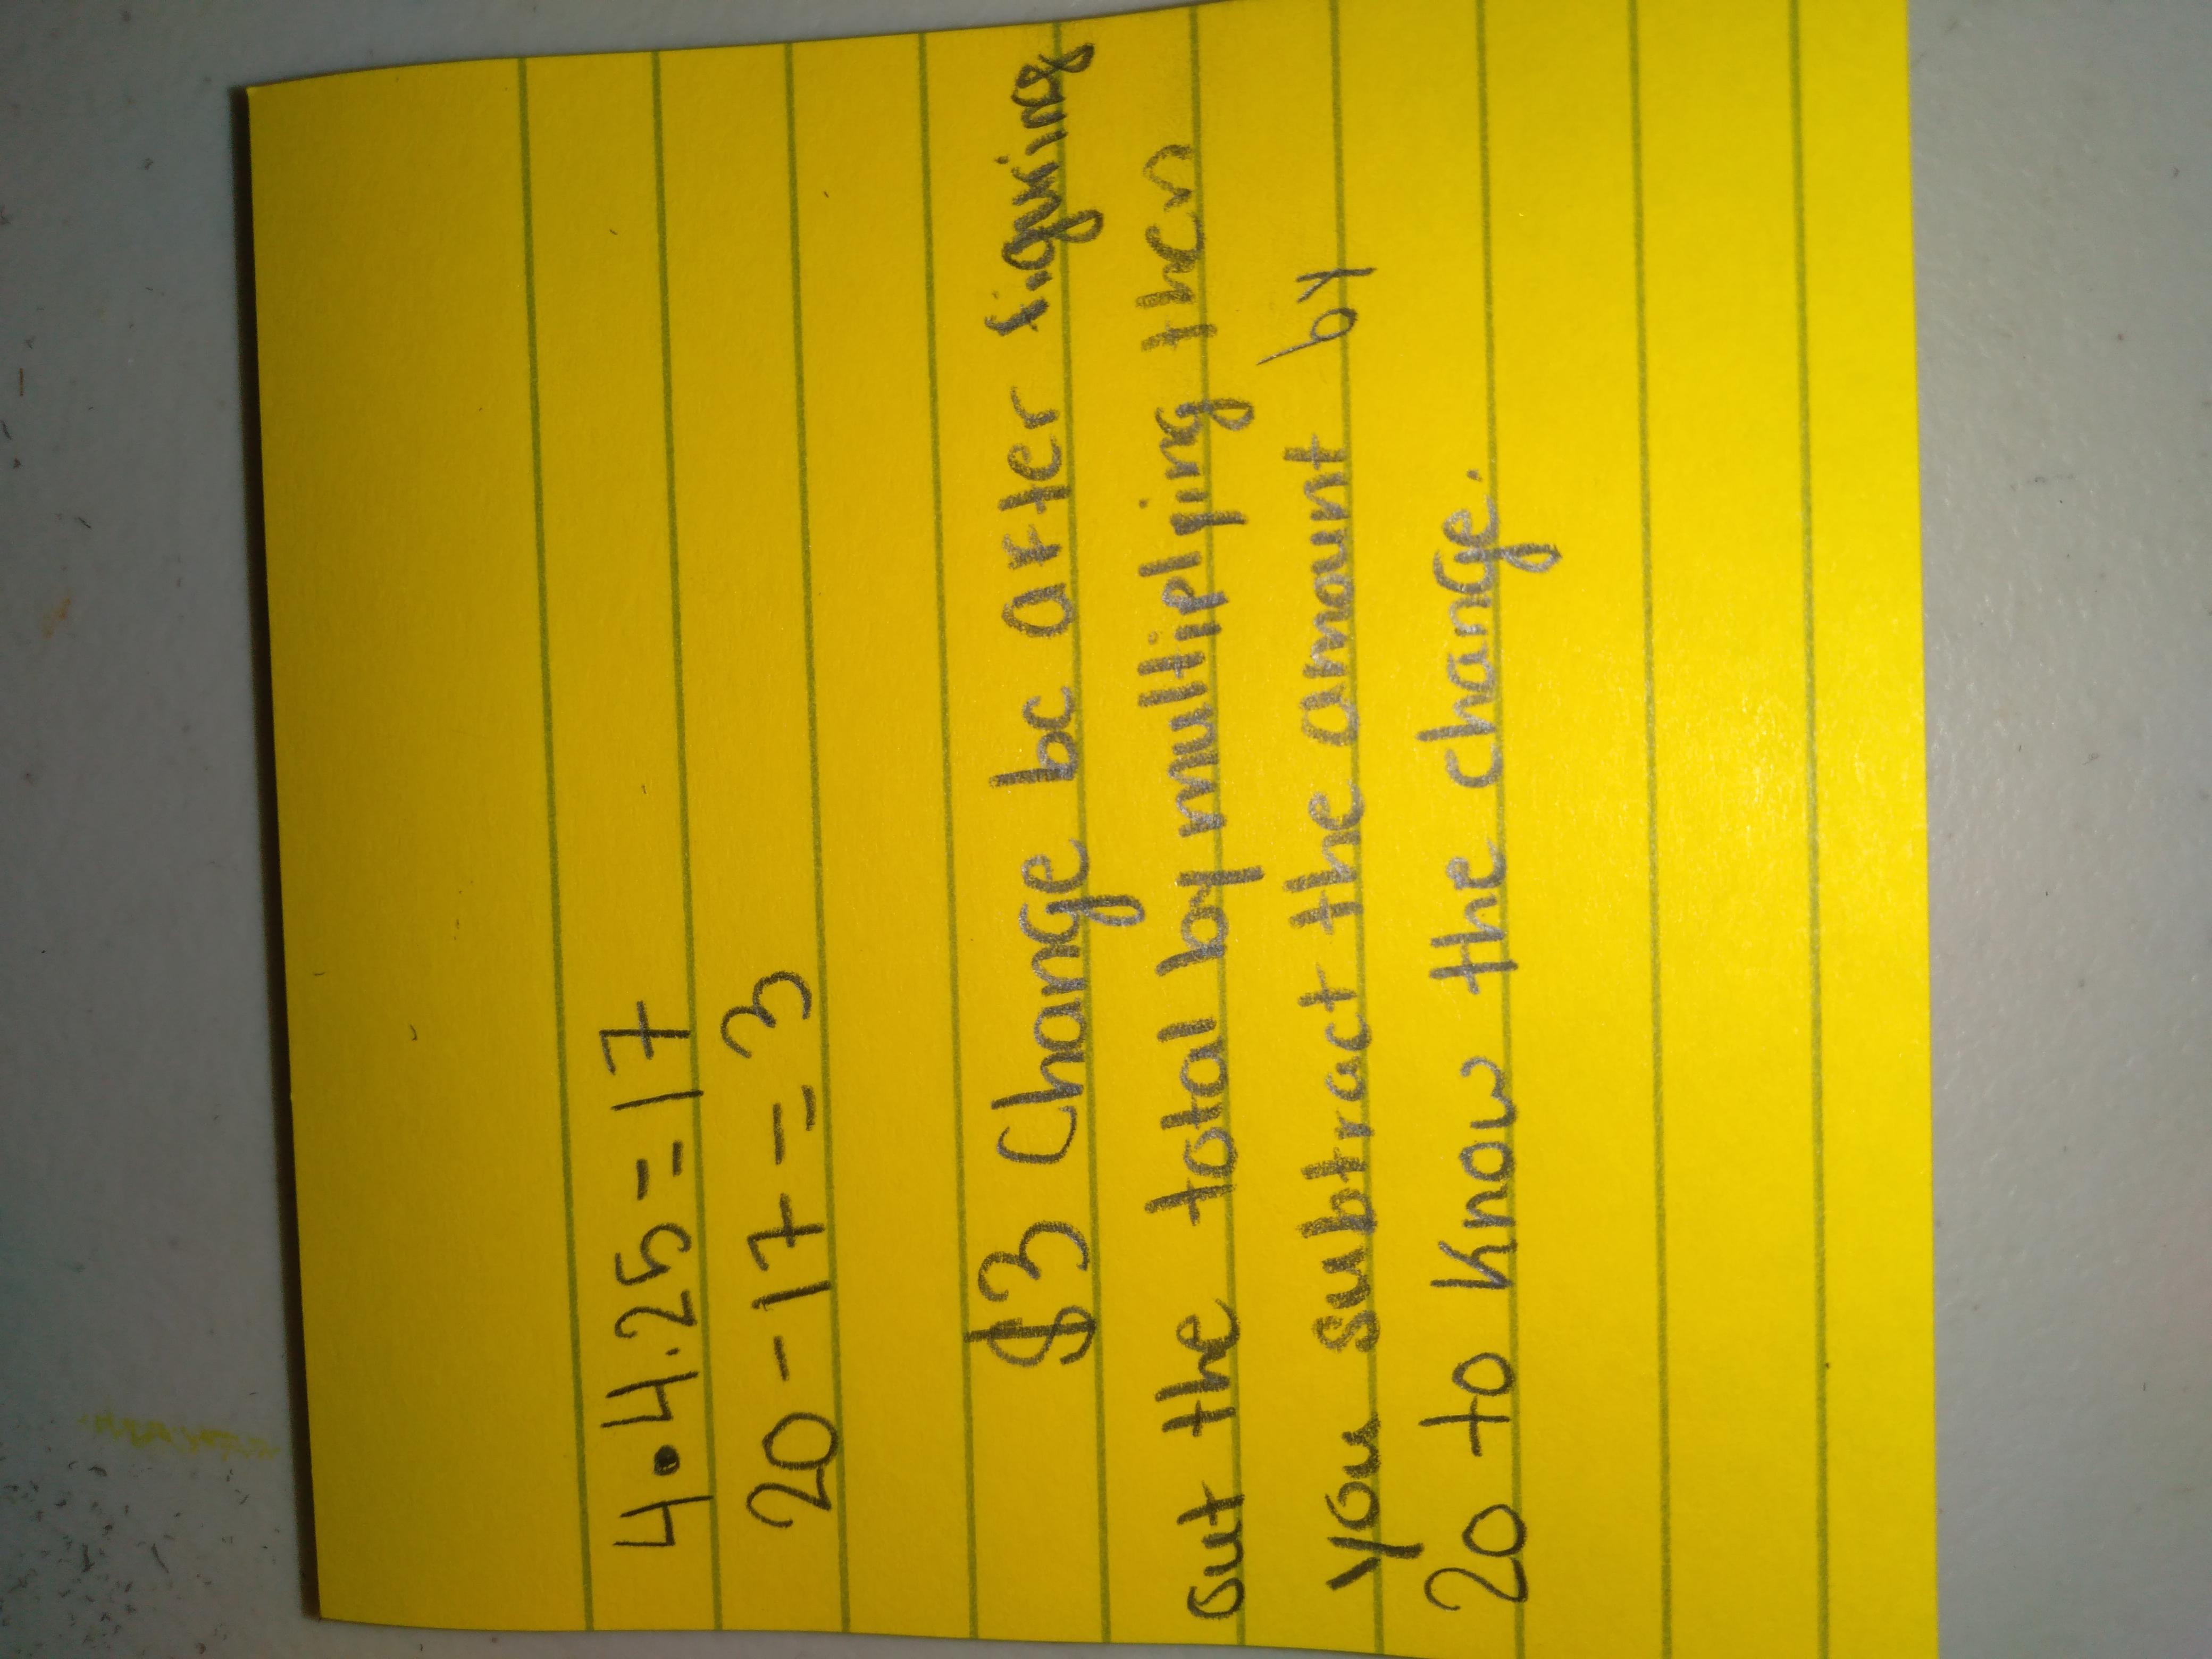 4•4.25=17
20-17=3
$3 Change bc after figuring
out the total by multiplying then
you subtract the amount by
20 to know the change.